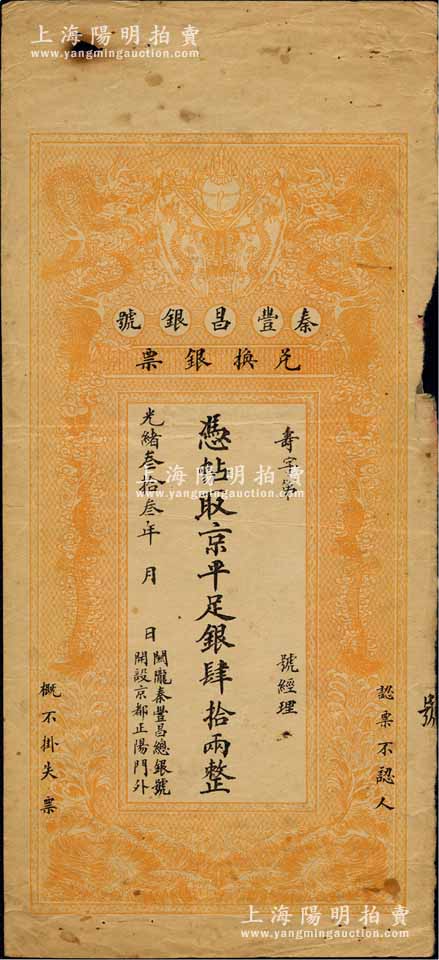 上海陽明拍賣
www.yangmingauction.com
秦豐昌銀號
兌換銀票
壽字第　號經理
憑帖取京平足銀肆拾兩整
光緒叁拾叁年　月　日
關隴秦豐昌總銀號
開設京都正陽門外
認票不認人
概不掛失票
號
上海陽明拍賣
www.yangmingauction.com
上海陽明拍賣
www.yangmingauction.com